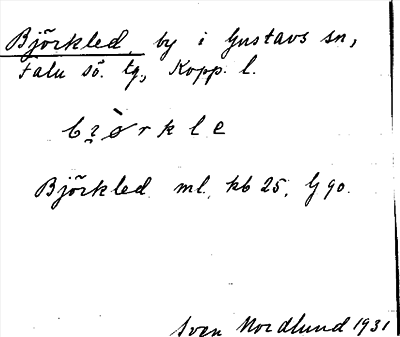 Björkled, by i Gustavs sn,
Falu sö. tg, Kopp. l.
Björkled ml, kb 25, G 90.
Sven Nordlund 1931